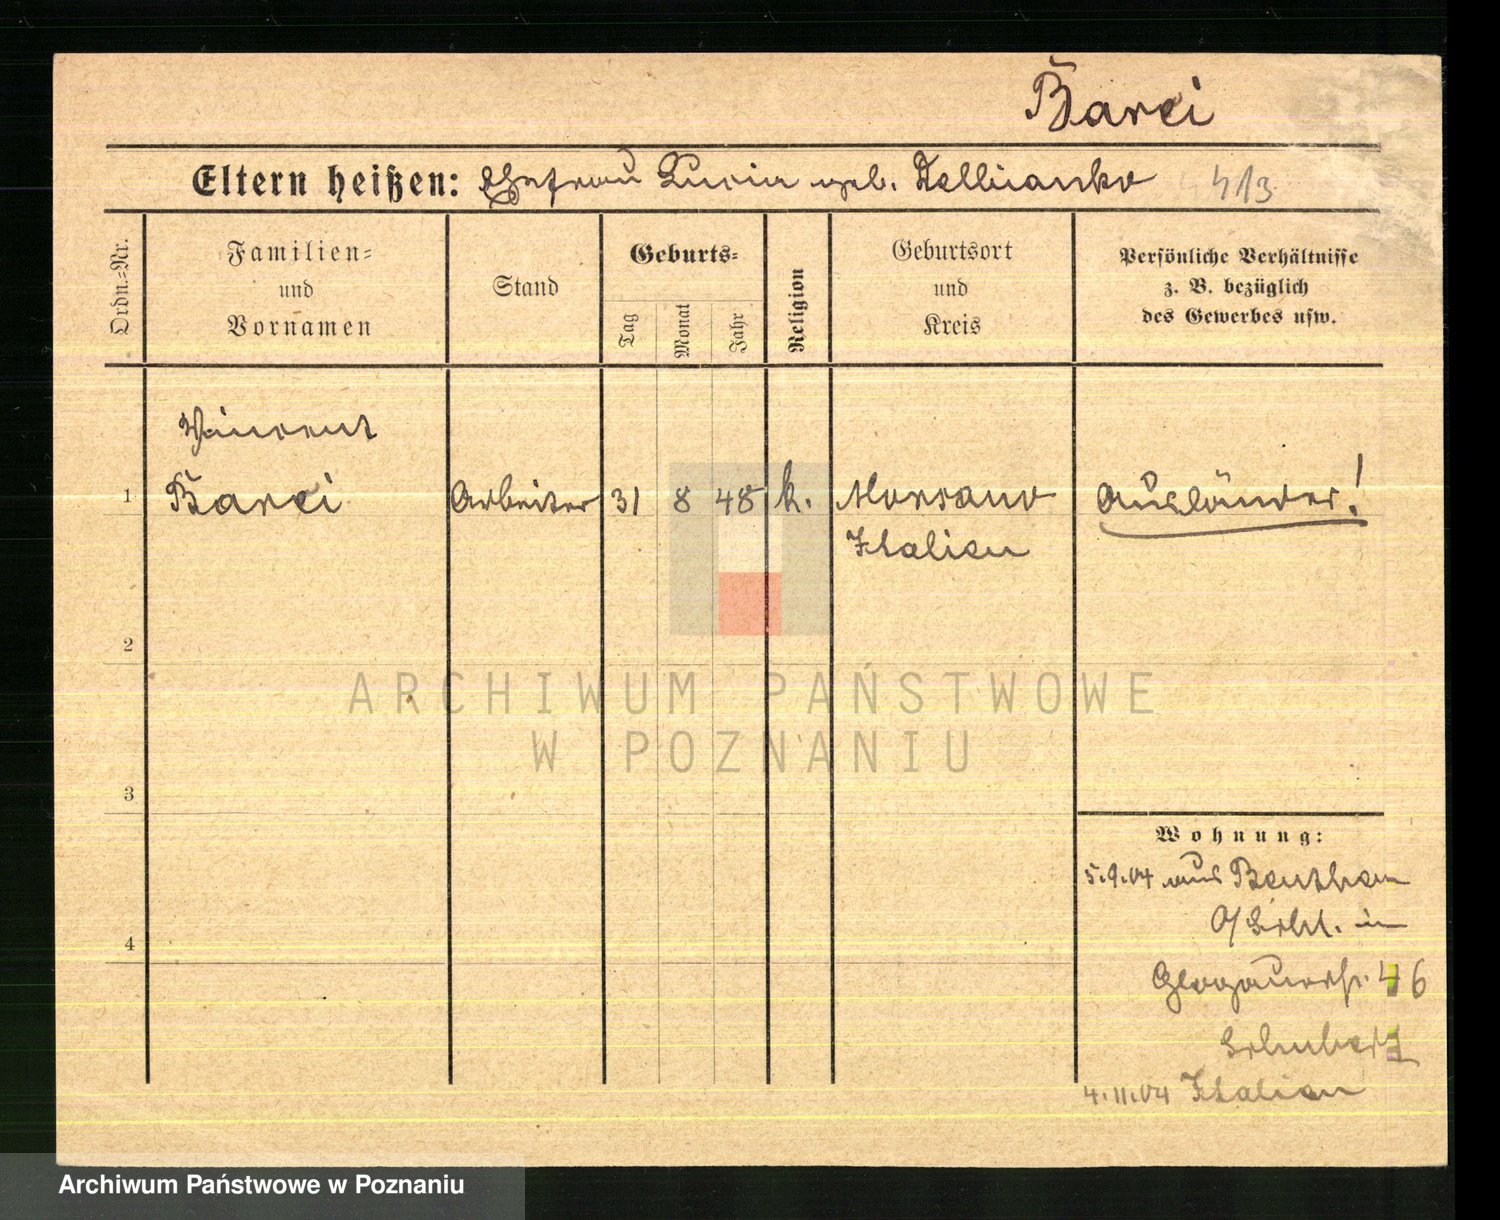 Barci
Eltern heißen: Ehefrau Lucia geb. 413
Ordn.=Nr.
Familien=
und
Vornamen
Stand
Geburts=
Tag
Monat
Jahr
Religion
Geburtsort
und
Kreis
Persönliche Verhältnisse
z. B. bezüglich
des Gewerbes usw.
Vincent
1 Barci Arbeiter 31 8 48 k. Morsano Ausländer!
Italien
2
3
4
Wohnung:
5.9.04 aus Beuthen
O/Schl. in
Glogauerstr. 46
Schubert
4.11.04 Italien
ARCHIWUM PAŃSTWOWE
W POZNANIU
Archiwum Państwowe w Poznaniu